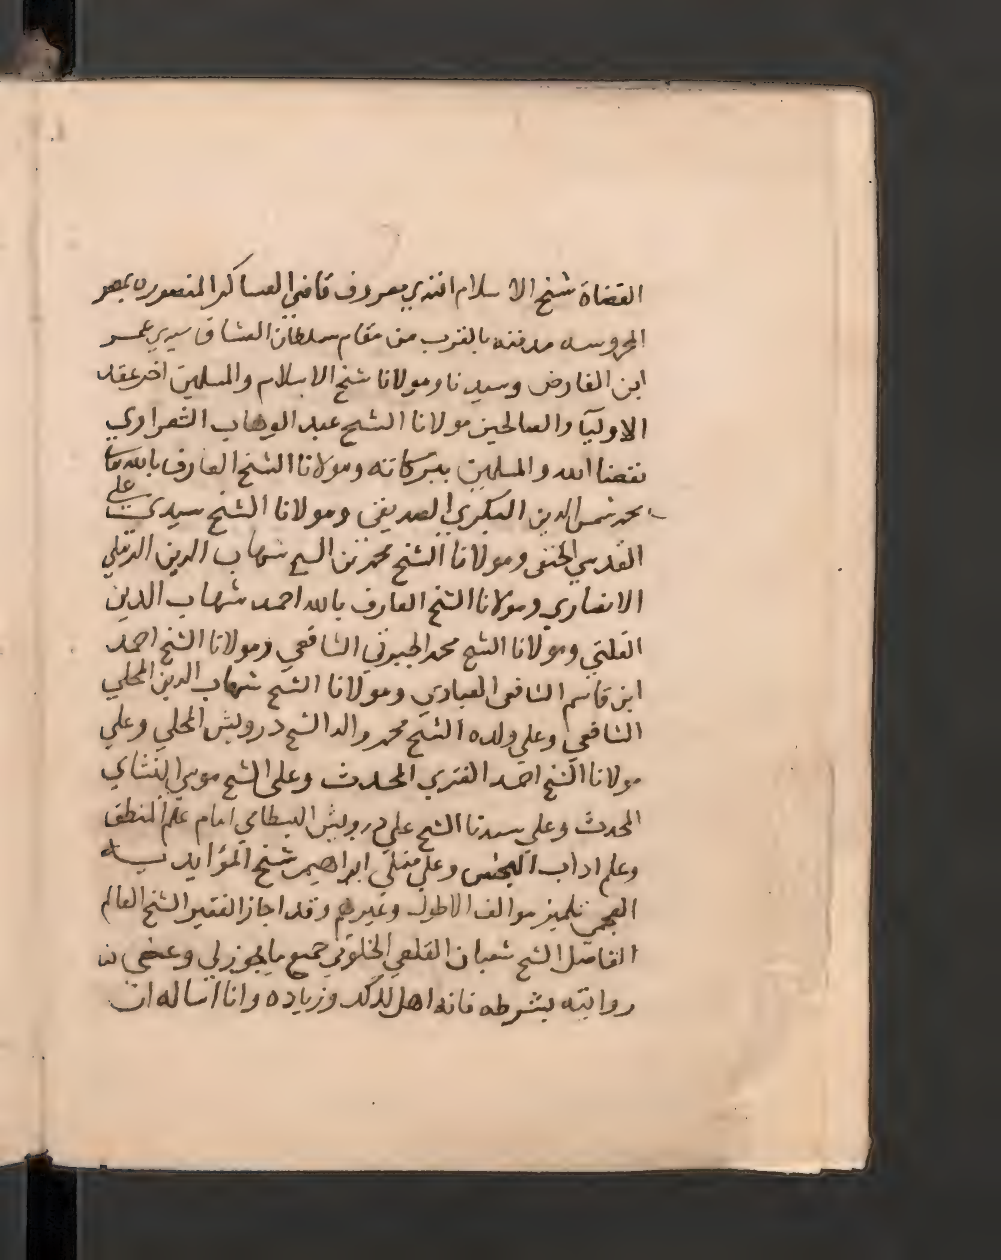 القضاة شيخ الاسلام افندي معروف قاضي العساكر المنصوره بمصر
المحروسه مدفنه بالقرب من مقام سلطان العشاق سيدي عمر
ابن الفارض وسيدنا ومولانا شيخ الاسلام والمسلمين اخر عقد
الاوليآ والصالحين مولانا الشيخ عبد الوهاب الشعراوي
نفعنا الله والمسلمين ببركاته ومولانا الشيخ العارف بالله
محمد شمس الدين البكري الصديقي ومولانا الشيخ سيدي علي
القدسي الحنفي ومولانا الشيخ محمد بن الشيخ شهاب الدين الرملي
الانصاري ومولانا الشيخ العارف بالله احمد شهاب الدين
القلني ومولانا الشيخ محمد الجبرتي الشافعي ومولانا الشيخ احمد
ابن قاسم الشافعي العبادي ومولانا الشيخ شهاب الدين المحلي
الشافعي وعلي ولده الشيخ محمد والد الشيخ درويش المحلي وعلي
مولانا الشيخ احمد المحدث وعلى الشيخ موسي
المحدث وعلي سيدنا الشيخ علي درويش البسطامي امام علم المنطق
وعلم اداب البحث وعلي ابراهيم شيخ المؤايديه
العجمي تلميذ موالف الاطول وغيرهم وقد اجاز الفقير الشيخ العالم
الفاضل الشيخ شعبان القلعي الخلوتي جميع ما يجوز لي وعني
روايته بشرطه فانه اهل لذلك وزياده وانا اساله ان